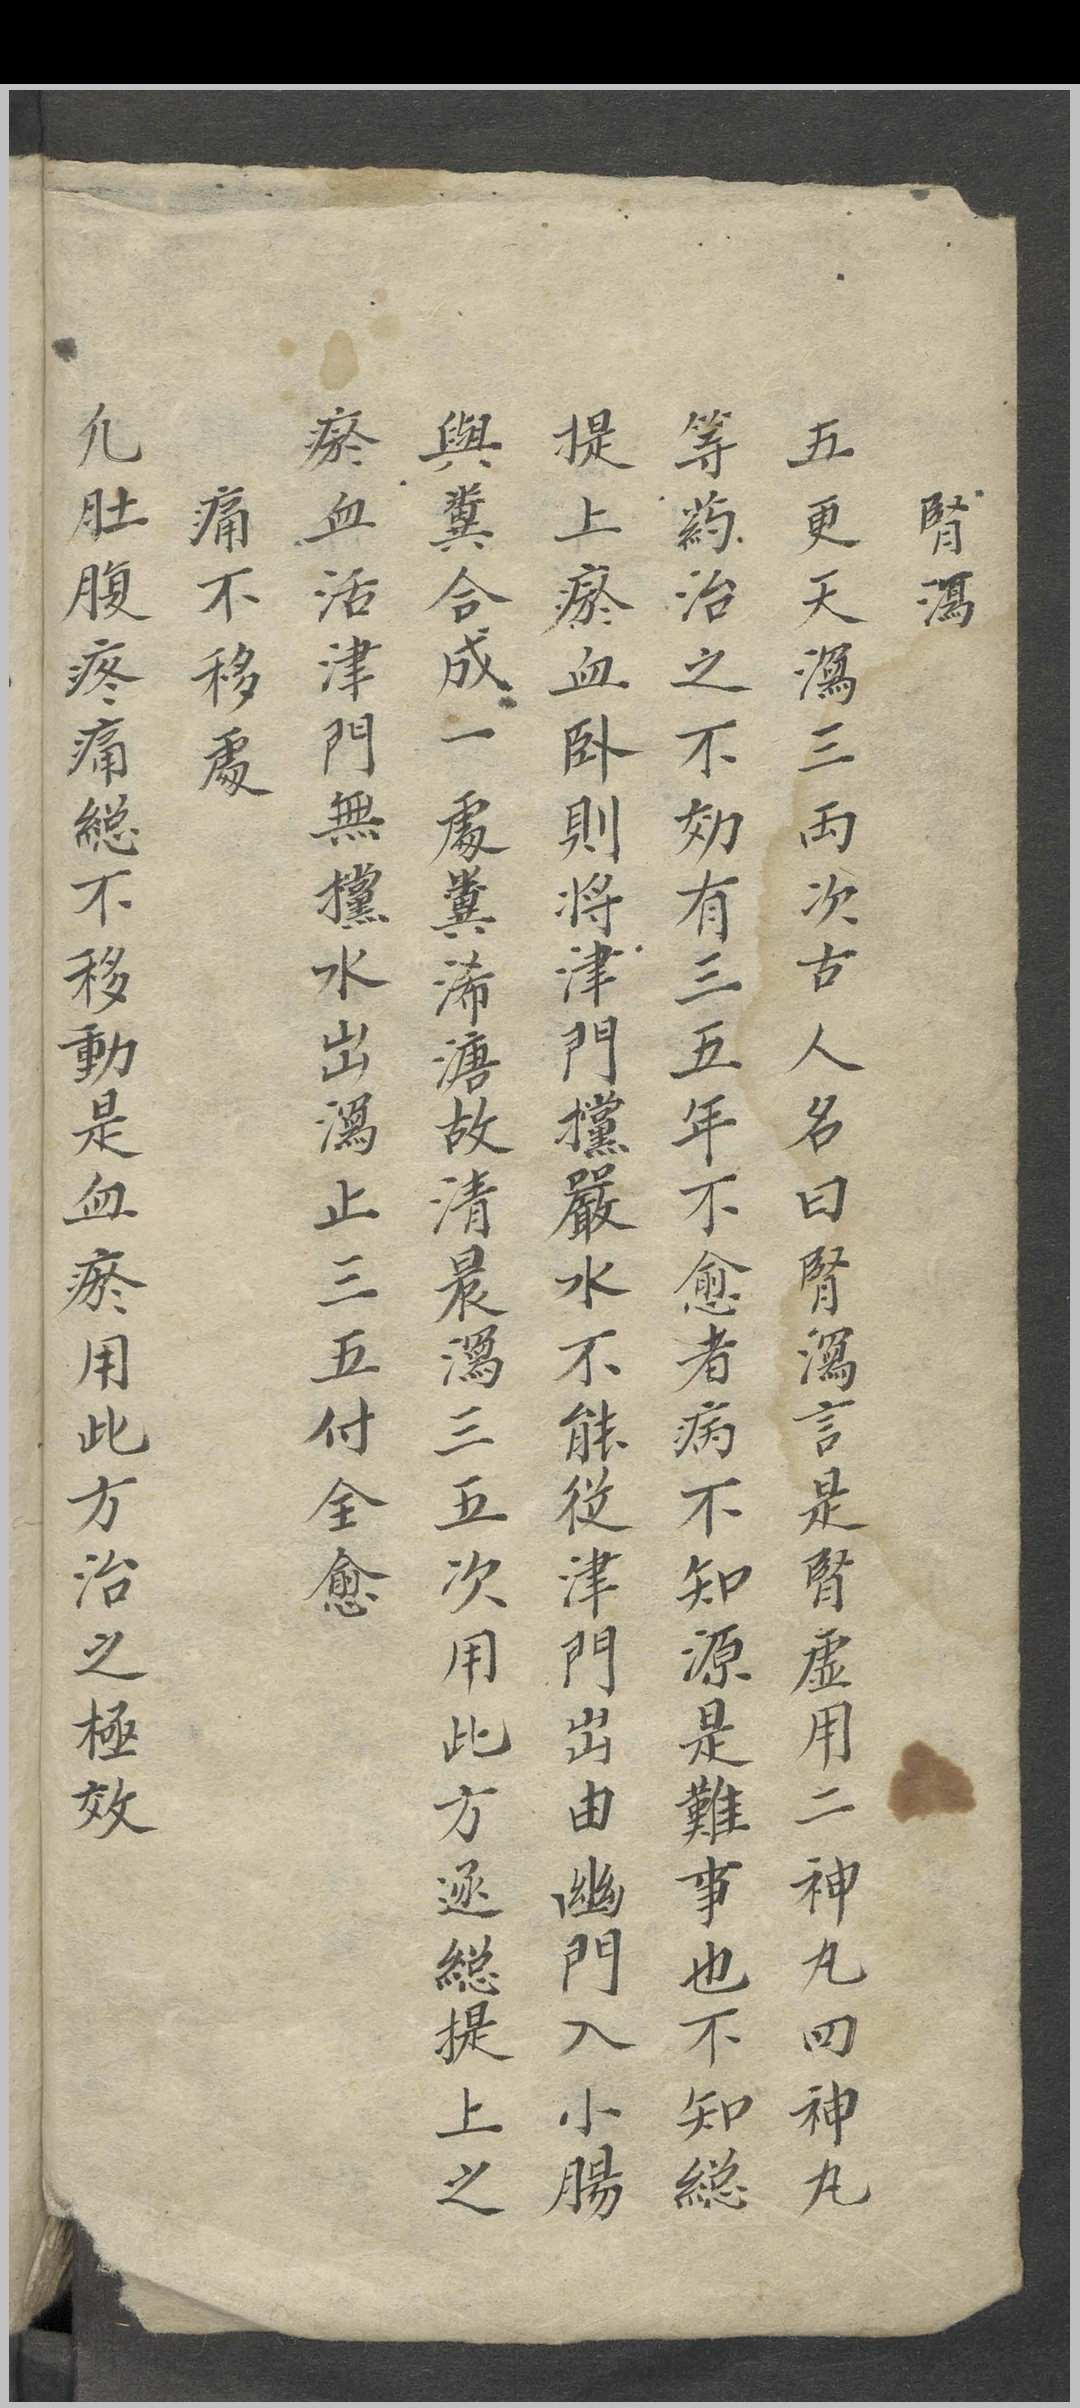 腎瀉
五更天瀉三兩次古人名曰腎瀉言是腎虛用二神丸四神丸
等药治之不効有三五年不愈者病不知源是難事也不知総
提上瘀血卧則將津門攩嚴水不能從津門出由幽門入小腸
與糞合成一處糞浠溏故清晨瀉三五次用此方逐総提上之
瘀血活津門無攩水出瀉止三五付全愈
痛不移處
凢肚腹疼痛総不移動是血瘀用此方治之極效